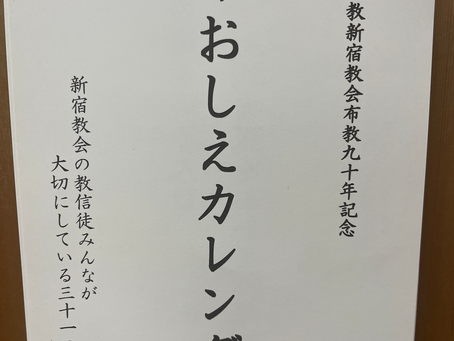 教新宿教会布教九十年記念
おしえカレンダ
新宿教会の教信徒みんなが
大切にしている三十一